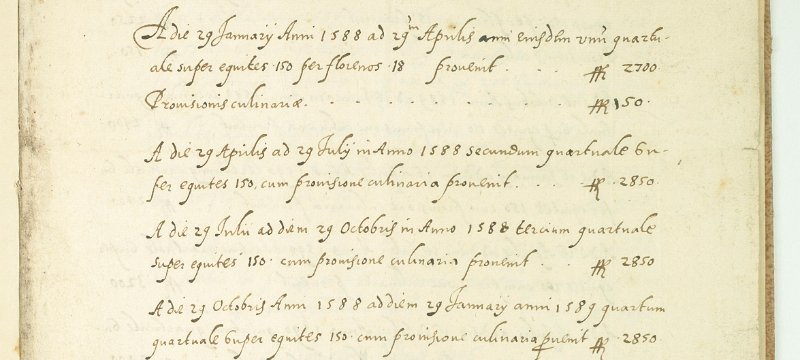 A die 29 Januarij Anni 1588 ad 29m Aprilis anni eiusdem unu quartu-
ale super equites 150 per florenos 18 provenit . . . ff 2700
Provisionis culinariæ . . . . . . . . ff 150.
A die 29 Aprilis ad 29 July in Anno 1588 secundum quartuale su-
per equites 150, cum provisione culinaria provenit . . . ff . 2850.
A die 29 Julii ad diem 29 Octobris in Anno 1588 tercium quartuale
super equites 150. cum provisione culinaria provenit . . ff 2850
A die 29 Octobris Anni 1588 ad diem 29 Januarij anni 1589 quartum
quartuale super equites 150. cum provisione culinaria puenit ff . 2850